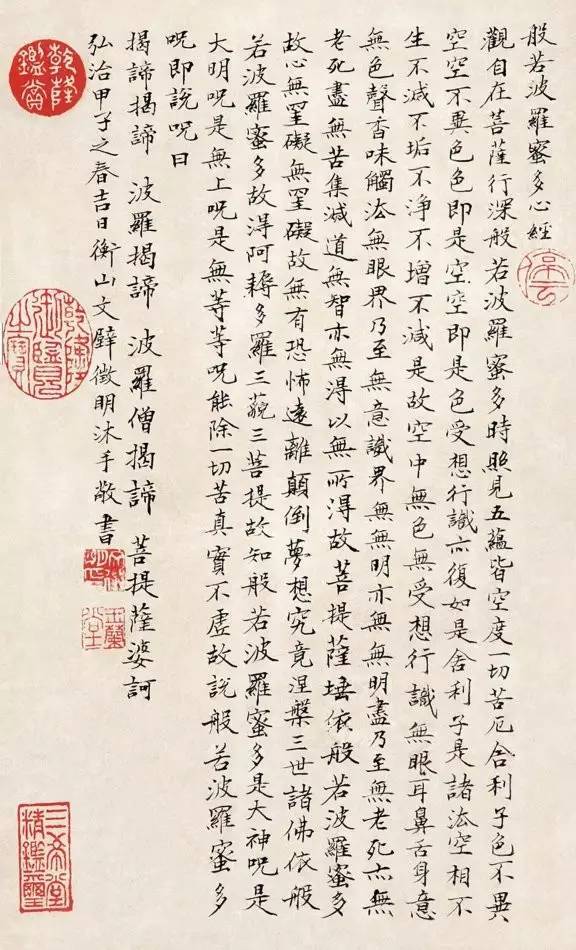 般若波羅蜜多心經
觀自在菩薩行深般若波羅蜜多時照見五蘊皆空度一切苦厄舍利子色不異
空空不異色色即是空空即是色受想行識亦復如是舍利子是諸法空相不
生不滅不垢不淨不增不減是故空中無色無受想行識無眼耳鼻舌身意
無色聲香味觸法無眼界乃至無意識界無無明亦無無明盡乃至無老死亦無
老死盡無苦集滅道無智亦無得以無所得故菩提薩埵依般若波羅蜜多
故心無罣礙無罣礙故無有恐怖遠離顛倒夢想究竟涅槃三世諸佛依般
若波羅蜜多故得阿耨多羅三藐三菩提故知般若波羅蜜多是大神呪是
大明呪是無上呪是無等等呪能除一切苦真實不虛故說般若波羅蜜多
呪即說呪曰
揭諦揭諦 波羅揭諦 波羅僧揭諦 菩提薩婆訶
弘治甲子之春吉日衡山文壁徵明沐手敬書
停雲
玉蘭堂
乾隆鑑賞
乾隆御覽之寶
三希堂精鑑璽